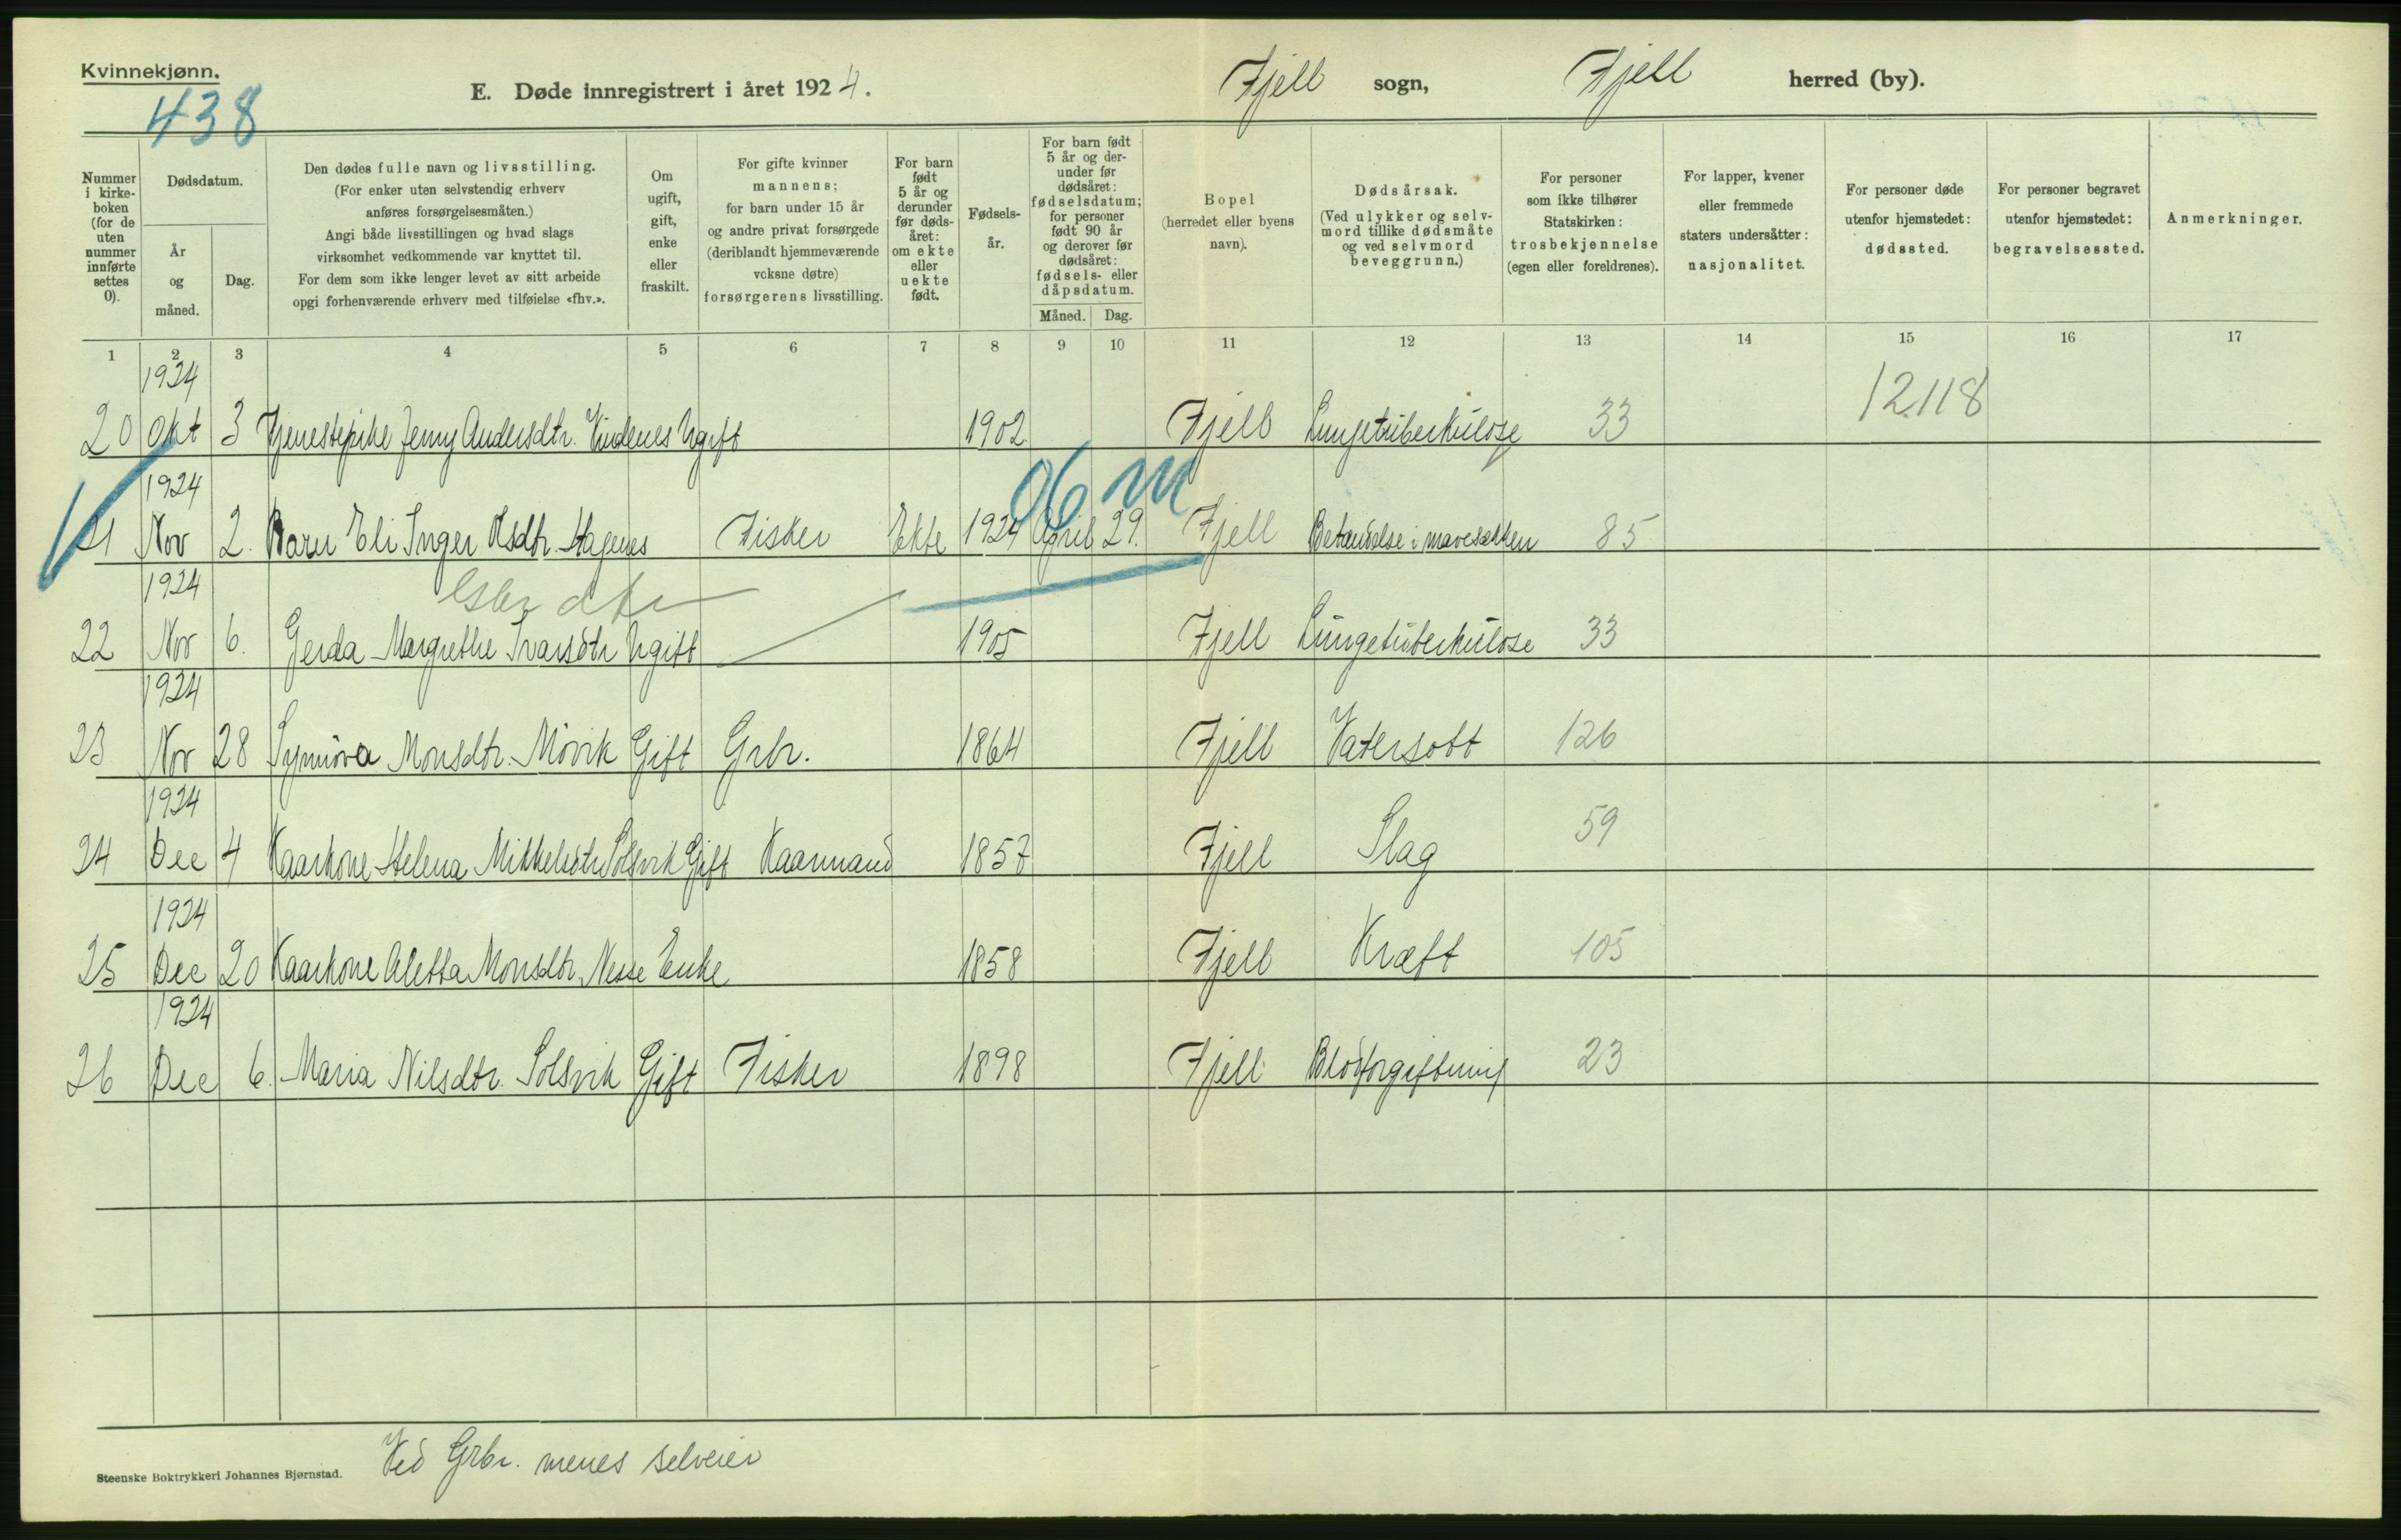 Kvinnekjønn.
438
E. Døde innregistrert i året 1924.
Fjell sogn, Fjell herred (by).
Nummer i kirke- boken (for de uten nummer innførte settes 0).
Dødsdatum.
År og måned.
Dag.
Den dødes fulle navn og livsstilling.
(For enker uten selvstendig erhverv
anføres forsørgelsesmåten.)
Angi både livsstillingen og hvad slags
virksomhet vedkommende var knyttet til.
For dem som ikke lenger levet av sitt arbeide
opgi forhenværende erhverv med tilføielse «fhv.».
Om ugift, gift, enke eller fraskilt.
For gifte kvinner
mannens;
for barn under 15 år
og andre privat forsørgede
(deriblandt hjemmeværende
voksne døtre)
forsørgerens livsstilling.
For barn født 5 år og derunder før døds- året: om ekte eller uekte født.
Fødsels- år.
For barn født 5 år og der- under før dødsåret: fødselsdatum; for personer født 90 år og derover før dødsåret: fødsels- eller dåpsdatum.
Måned. Dag.
Bopel
(herredet eller byens
navn).
Dødsårsak.
(Ved ulykker og selv-
mord tillike dødsmåte
og ved selvmord
beveggrunn.)
For personer
som ikke tilhører
Statskirken:
trosbekjennelse
(egen eller foreldrenes).
For lapper, kvener
eller fremmede
staters undersåtter:
nasjonalitet.
For personer døde
utenfor hjemstedet:
dødssted.
For personer begravet
utenfor hjemstedet:
begravelsessted.
Anmerkninger.
1 2 3 4 5 6 7 8 9 10 11 12 13 14 15 16 17
1924
20 Okt 3 Tjenestepike Jenny Andersdtr. Vindenes Ugift 1902 Fjell Lungetuberkulose 33 12118
1924 06 m
21 Nov 2. Barn Eli Inger Olsdtr. Hagenes Fisker Ekte 1924 April 29. Fjell Betændelse i mavesækken 85
1924
22 Nov 6. Gerda Margrethe Ivarsdtr Ugift 1905 Fjell Lungetuberkulose 33
1924
23 Nov 28 Synnöva Monsdtr. Mövik Gift Grbr. 1864 Fjell Vatersott 126
1924
24 Dec 4 Kaarkone Helena Mikkelsdtr Solsvik Gift Kaarmand 1857 Fjell Slag 59
1924
25 Dec 20 Kaarkone Aletta Monsdtr. Nesse Enke 1858 Fjell Kræft 105
1924
26 Dec 6. Maria Nilsdtr. Solsvik Gift Fisker 1898 Fjell Blodforgiftning 23
Steenske Boktrykkeri Johannes Bjørnstad.
Ved Grbr. menes selveier